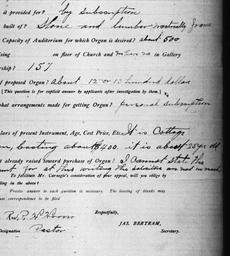 is provided for? by subscription
built of? Stone and lumber
Capacity of Auditorium for which Organ is desired? about 500
sing on floor of Church and in Gallery
ership? 157
d proposed Organ? about 12 or 15 hundred dollar
[This question is for explicit answer by applicants after investigation by them]
hat arrangements made for getting Organ? personal subscription
lars of present Instrument, Age, Cost Price, Etc. It is Cottage
n, Costing about $400. it is about 25 yr old
t already raised toward purchase of Organ? I cannot state the
unt for at this writing the
To facilitate Mr. Carnegie's consideration of appeal, will you oblige by
ling in the above!
Precise answer to each question is necessary. The leaving of blanks may
correspondence to be ignored.
Respectfully,
Rev. P.
JAS. BERTRAM,
Designation Pastor Secretary.